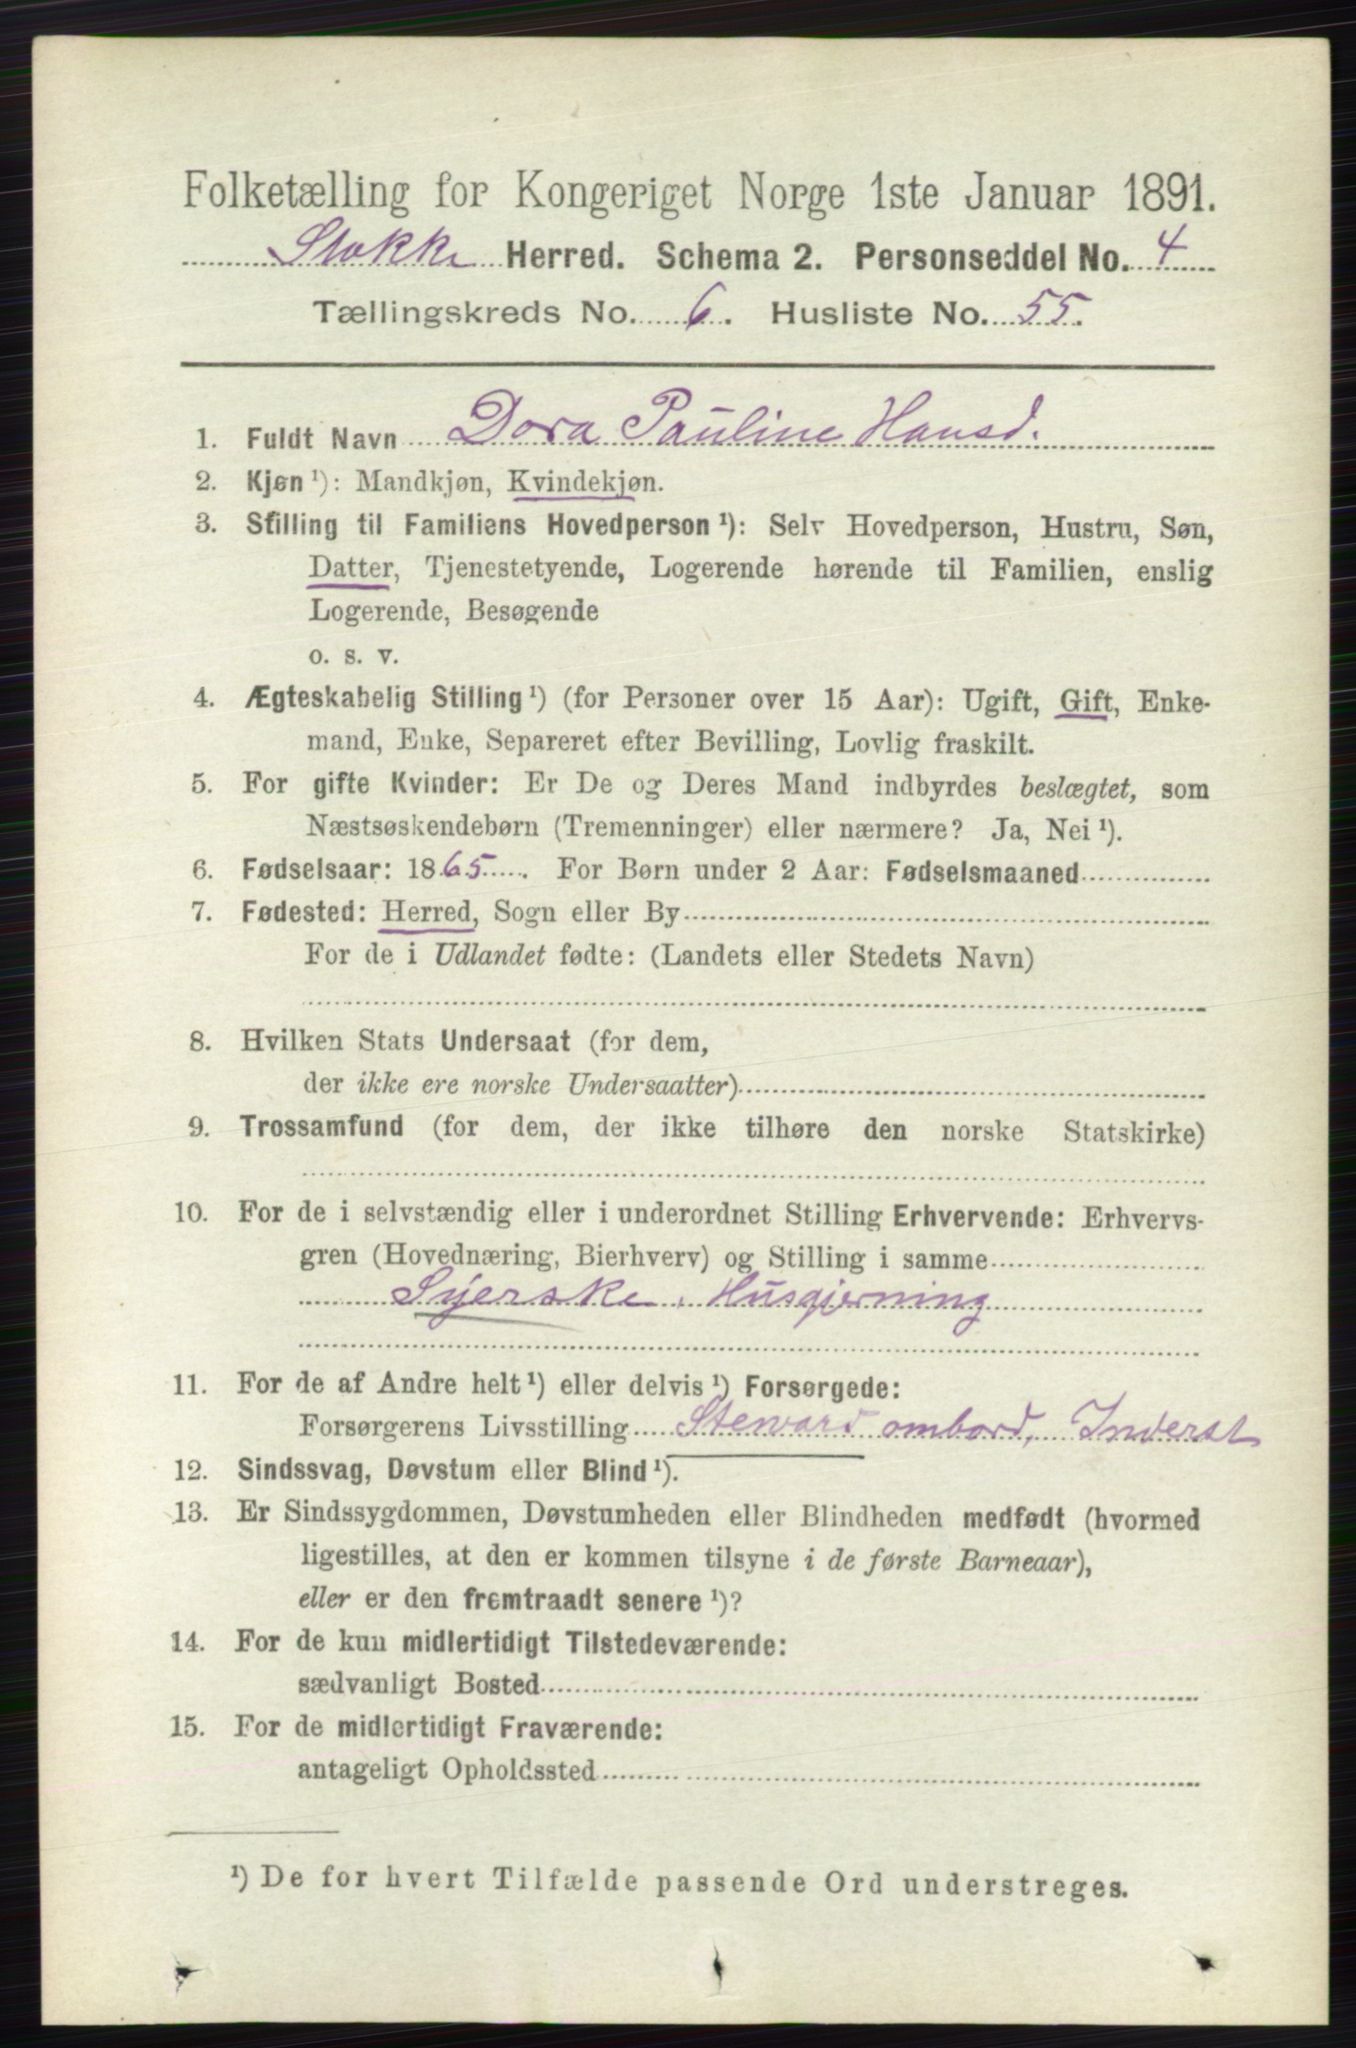 Folketælling for Kongeriget Norge 1ste Januar 1891.
Stokke Herred. Schema 2. Personseddel No. 4
Tællingskreds No. 6. Husliste No. 55.
1. Fuldt Navn Dora Pauline Hansd.
2. Kjøn ¹): Mandkjøn, Kvindekjøn.
3. Stilling til Familiens Hovedperson ¹): Selv Hovedperson, Hustru, Søn,
Datter, Tjenestetyende, Logerende hørende til Familien, enslig
Logerende, Besøgende
o. s. v.
4. Ægteskabelig Stilling ¹) (for Personer over 15 Aar): Ugift, Gift, Enke-
mand, Enke, Separeret efter Bevilling, Lovlig fraskilt.
5. For gifte Kvinder: Er De og Deres Mand indbyrdes beslægtet, som
Næstsøskendebørn (Tremenninger) eller nærmere? Ja, Nei ¹).
6. Fødselsaar: 1865. For Børn under 2 Aar: Fødselsmaaned
7. Fødested: Herred, Sogn eller By
For de i Udlandet fødte: (Landets eller Stedets Navn)
8. Hvilken Stats Undersaat (for dem,
der ikke ere norske Undersaatter)
9. Trossamfund (for dem, der ikke tilhøre den norske Statskirke)
10. For de i selvstændig eller i underordnet Stilling Erhvervende: Erhvervs-
gren (Hovednæring, Bierhverv) og Stilling i samme
Syerske, Husgjerning
11. For de af Andre helt ¹) eller delvis ¹) Forsørgede:
Forsørgerens Livsstilling Steward ombord, Inderst
12. Sindssvag, Døvstum eller Blind ¹).
13. Er Sindssygdommen, Døvstumheden eller Blindheden medfødt (hvormed
ligestilles, at den er kommen tilsyne i de første Barneaar),
eller er den fremtraadt senere ¹)?
14. For de kun midlertidigt Tilstedeværende:
sædvanligt Bosted
15. For de midlertidigt Fraværende:
antageligt Opholdssted
¹) De for hvert Tilfælde passende Ord understreges.